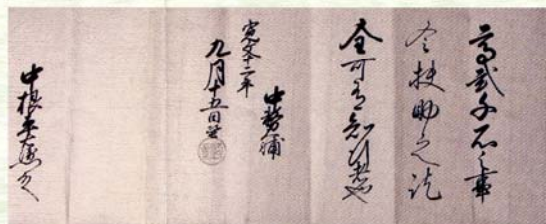 高弐千石之事
令扶助之訖
全可有知行者也
中務輔
寛文十二年
九月十五日
中根平